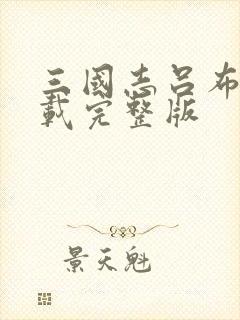 三國志吕布
載完整版
景天魁